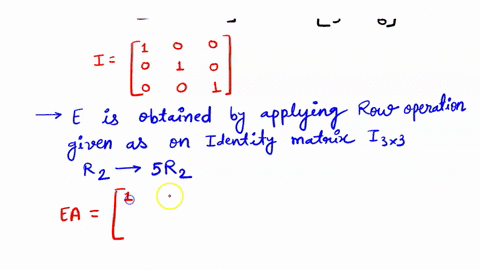 I = [1 0 0
0 1 0
0 0 1]
→ E is obtained by applying Row operation
given as on Identity matrix I3×3
R2 → 5R2
EA = [1